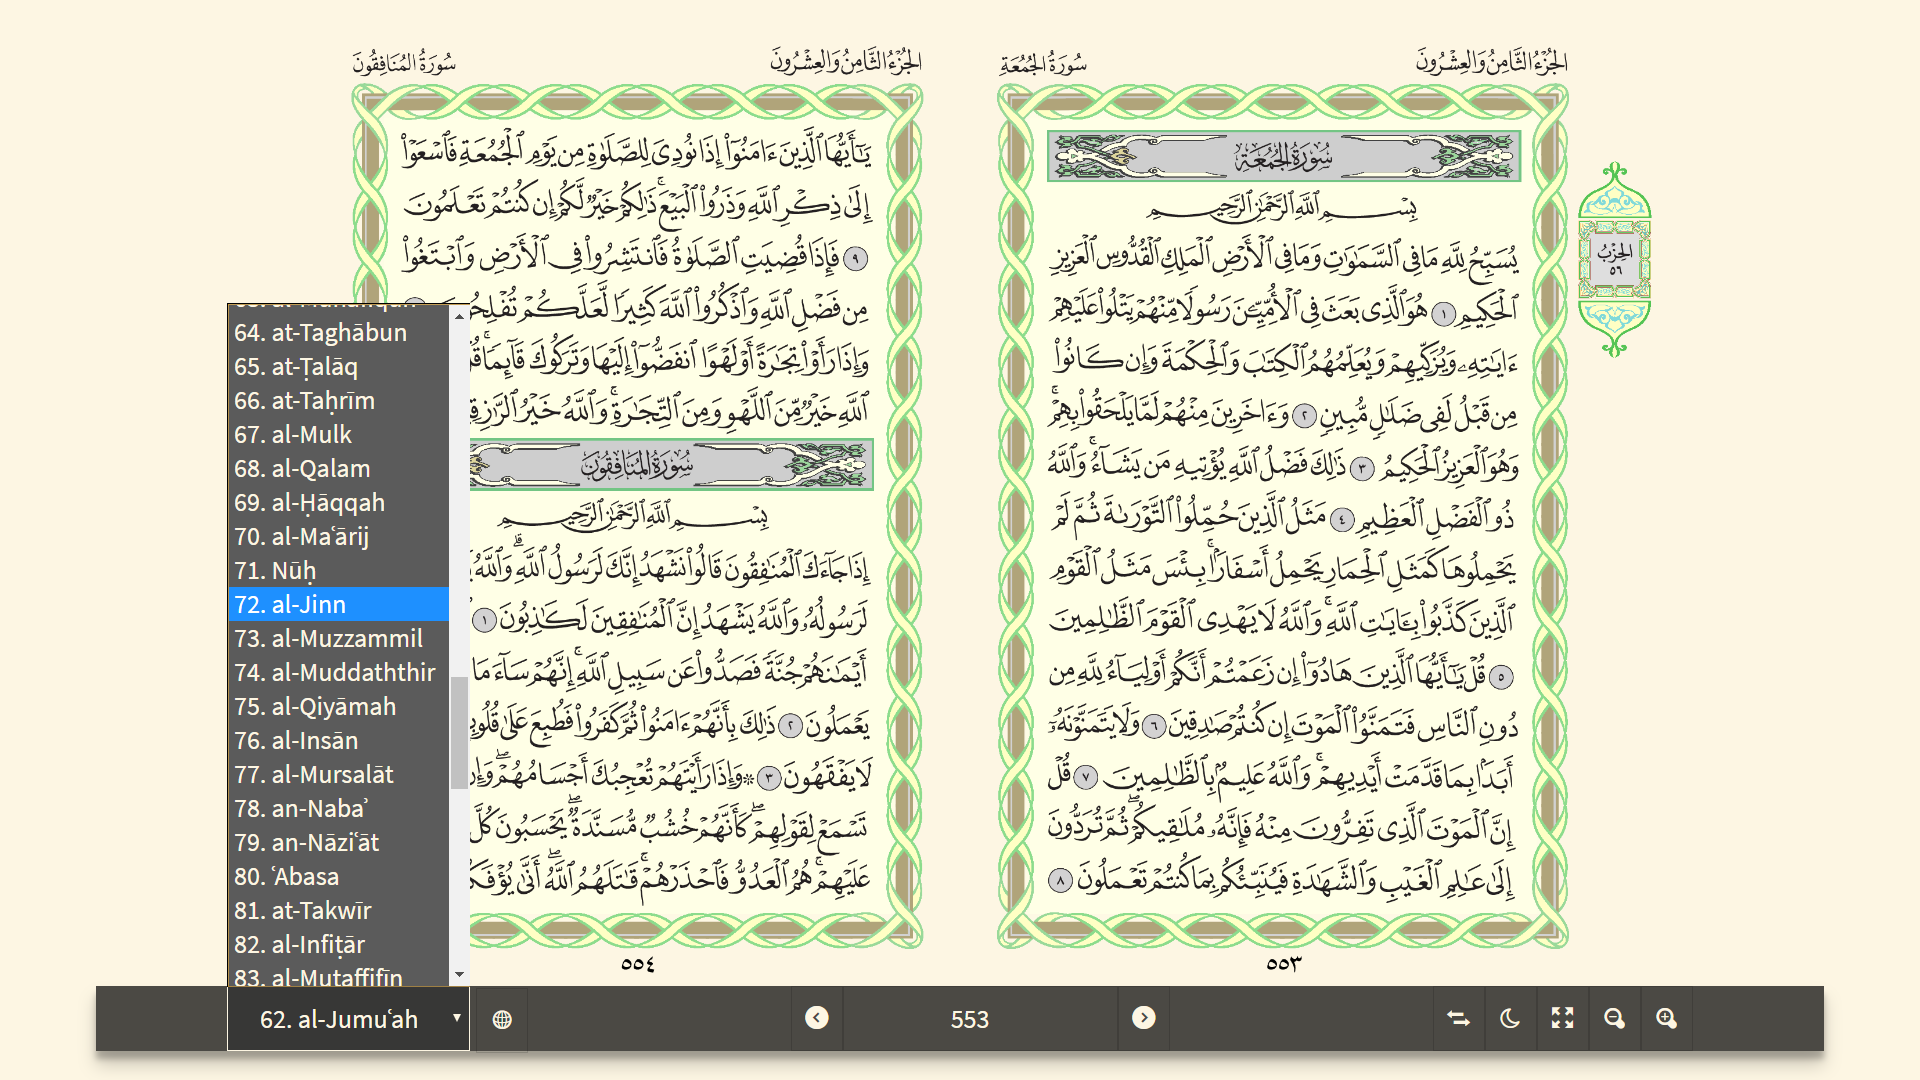 الجُزْءُ الثَّامِنُ وَالعِشْرُونَ
سُورَةُ الجُمُعَةِ
سُورَةُ الجُمُعَةِ
بِسْمِ ٱللَّهِ ٱلرَّحْمَٰنِ ٱلرَّحِيمِ
يُسَبِّحُ لِلَّهِ مَا فِى ٱلسَّمَٰوَٰتِ وَمَا فِى ٱلْأَرْضِ ٱلْمَلِكِ ٱلْقُدُّوسِ ٱلْعَزِيزِ
ٱلْحَكِيمِ ١ هُوَ ٱلَّذِى بَعَثَ فِى ٱلْأُمِّيِّـۧنَ رَسُولًا مِّنْهُمْ يَتْلُوا۟ عَلَيْهِمْ
ءَايَٰتِهِۦ وَيُزَكِّيهِمْ وَيُعَلِّمُهُمُ ٱلْكِتَٰبَ وَٱلْحِكْمَةَ وَإِن كَانُوا۟
مِن قَبْلُ لَفِى ضَلَٰلٍ مُّبِينٍ ٢ وَءَاخَرِينَ مِنْهُمْ لَمَّا يَلْحَقُوا۟ بِهِمْ ۚ
وَهُوَ ٱلْعَزِيزُ ٱلْحَكِيمُ ٣ ذَٰلِكَ فَضْلُ ٱللَّهِ يُؤْتِيهِ مَن يَشَآءُ ۚ وَٱللَّهُ
ذُو ٱلْفَضْلِ ٱلْعَظِيمِ ٤ مَثَلُ ٱلَّذِينَ حُمِّلُوا۟ ٱلتَّوْرَىٰةَ ثُمَّ لَمْ
يَحْمِلُوهَا كَمَثَلِ ٱلْحِمَارِ يَحْمِلُ أَسْفَارًۢا ۚ بِئْسَ مَثَلُ ٱلْقَوْمِ
ٱلَّذِينَ كَذَّبُوا۟ بِـَٔايَٰتِ ٱللَّهِ ۚ وَٱللَّهُ لَا يَهْدِى ٱلْقَوْمَ ٱلظَّٰلِمِينَ
٥ قُلْ يَٰٓأَيُّهَا ٱلَّذِينَ هَادُوٓا۟ إِن زَعَمْتُمْ أَنَّكُمْ أَوْلِيَآءُ لِلَّهِ مِن
دُونِ ٱلنَّاسِ فَتَمَنَّوُا۟ ٱلْمَوْتَ إِن كُنتُمْ صَٰدِقِينَ ٦ وَلَا يَتَمَنَّوْنَهُۥٓ
أَبَدًۢا بِمَا قَدَّمَتْ أَيْدِيهِمْ ۚ وَٱللَّهُ عَلِيمٌۢ بِٱلظَّٰلِمِينَ ٧ قُلْ
إِنَّ ٱلْمَوْتَ ٱلَّذِى تَفِرُّونَ مِنْهُ فَإِنَّهُۥ مُلَٰقِيكُمْ ۖ ثُمَّ تُرَدُّونَ
إِلَىٰ عَٰلِمِ ٱلْغَيْبِ وَٱلشَّهَٰدَةِ فَيُنَبِّئُكُم بِمَا كُنتُمْ تَعْمَلُونَ ٨
٥٥٣
الحِزْبُ
٥٦
الجُزْءُ الثَّامِنُ وَالعِشْرُونَ
سُورَةُ المُنَافِقُونَ
يَٰٓأَيُّهَا ٱلَّذِينَ ءَامَنُوٓا۟ إِذَا نُودِىَ لِلصَّلَوٰةِ مِن يَوْمِ ٱلْجُمُعَةِ فَٱسْعَوْا۟
إِلَىٰ ذِكْرِ ٱللَّهِ وَذَرُوا۟ ٱلْبَيْعَ ۚ ذَٰلِكُمْ خَيْرٌ لَّكُمْ إِن كُنتُمْ تَعْلَمُونَ
٩ فَإِذَا قُضِيَتِ ٱلصَّلَوٰةُ فَٱنتَشِرُوا۟ فِى ٱلْأَرْضِ وَٱبْتَغُوا۟
مِن فَضْلِ ٱللَّهِ وَٱذْكُرُوا۟ ٱللَّهَ كَثِيرًا لَّعَلَّكُمْ
وَإِذَا رَأَوْا۟ تِجَٰرَةً أَوْ لَهْوًا ٱنفَضُّوٓا۟ إِلَيْهَا وَتَرَكُوكَ قَآئِمًا ۚ
ٱللَّهِ خَيْرٌ مِّنَ ٱللَّهْوِ وَمِنَ ٱلتِّجَٰرَةِ ۚ وَٱللَّهُ خَيْرُ
سُورَةُ المُنَافِقُونَ
بِسْمِ ٱللَّهِ ٱلرَّحْمَٰنِ ٱلرَّحِيمِ
إِذَا جَآءَكَ ٱلْمُنَٰفِقُونَ قَالُوا۟ نَشْهَدُ إِنَّكَ لَرَسُولُ ٱللَّهِ ۗ وَٱللَّهُ
لَرَسُولُهُۥ وَٱللَّهُ يَشْهَدُ إِنَّ ٱلْمُنَٰفِقِينَ لَكَٰذِبُونَ ١
أَيْمَٰنَهُمْ جُنَّةً فَصَدُّوا۟ عَن سَبِيلِ ٱللَّهِ ۚ إِنَّهُمْ سَآءَ مَا
يَعْمَلُونَ ٢ ذَٰلِكَ بِأَنَّهُمْ ءَامَنُوا۟ ثُمَّ كَفَرُوا۟ فَطُبِعَ عَلَىٰ
لَا يَفْقَهُونَ ٣ ۞ وَإِذَا رَأَيْتَهُمْ تُعْجِبُكَ أَجْسَامُهُمْ ۖ وَإِن
تَسْمَعْ لِقَوْلِهِمْ ۖ كَأَنَّهُمْ خُشُبٌ مُّسَنَّدَةٌ ۖ يَحْسَبُونَ كُلَّ
عَلَيْهِمْ ۚ هُمُ ٱلْعَدُوُّ فَٱحْذَرْهُمْ ۚ قَٰتَلَهُمُ ٱللَّهُ ۖ أَنَّىٰ
٥٥٤
64. at-Taghābun
65. at-Ṭalāq
66. at-Taḥrīm
67. al-Mulk
68. al-Qalam
69. al-Ḥāqqah
70. al-Maʿārij
71. Nūḥ
72. al-Jinn
73. al-Muzzammil
74. al-Muddaththir
75. al-Qiyāmah
76. al-Insān
77. al-Mursalāt
78. an-Nabaʾ
79. an-Nāziʿāt
80. ʿAbasa
81. at-Takwīr
82. al-Infiṭār
83. al-Mutaffifīn
62. al-Jumuʿah
553